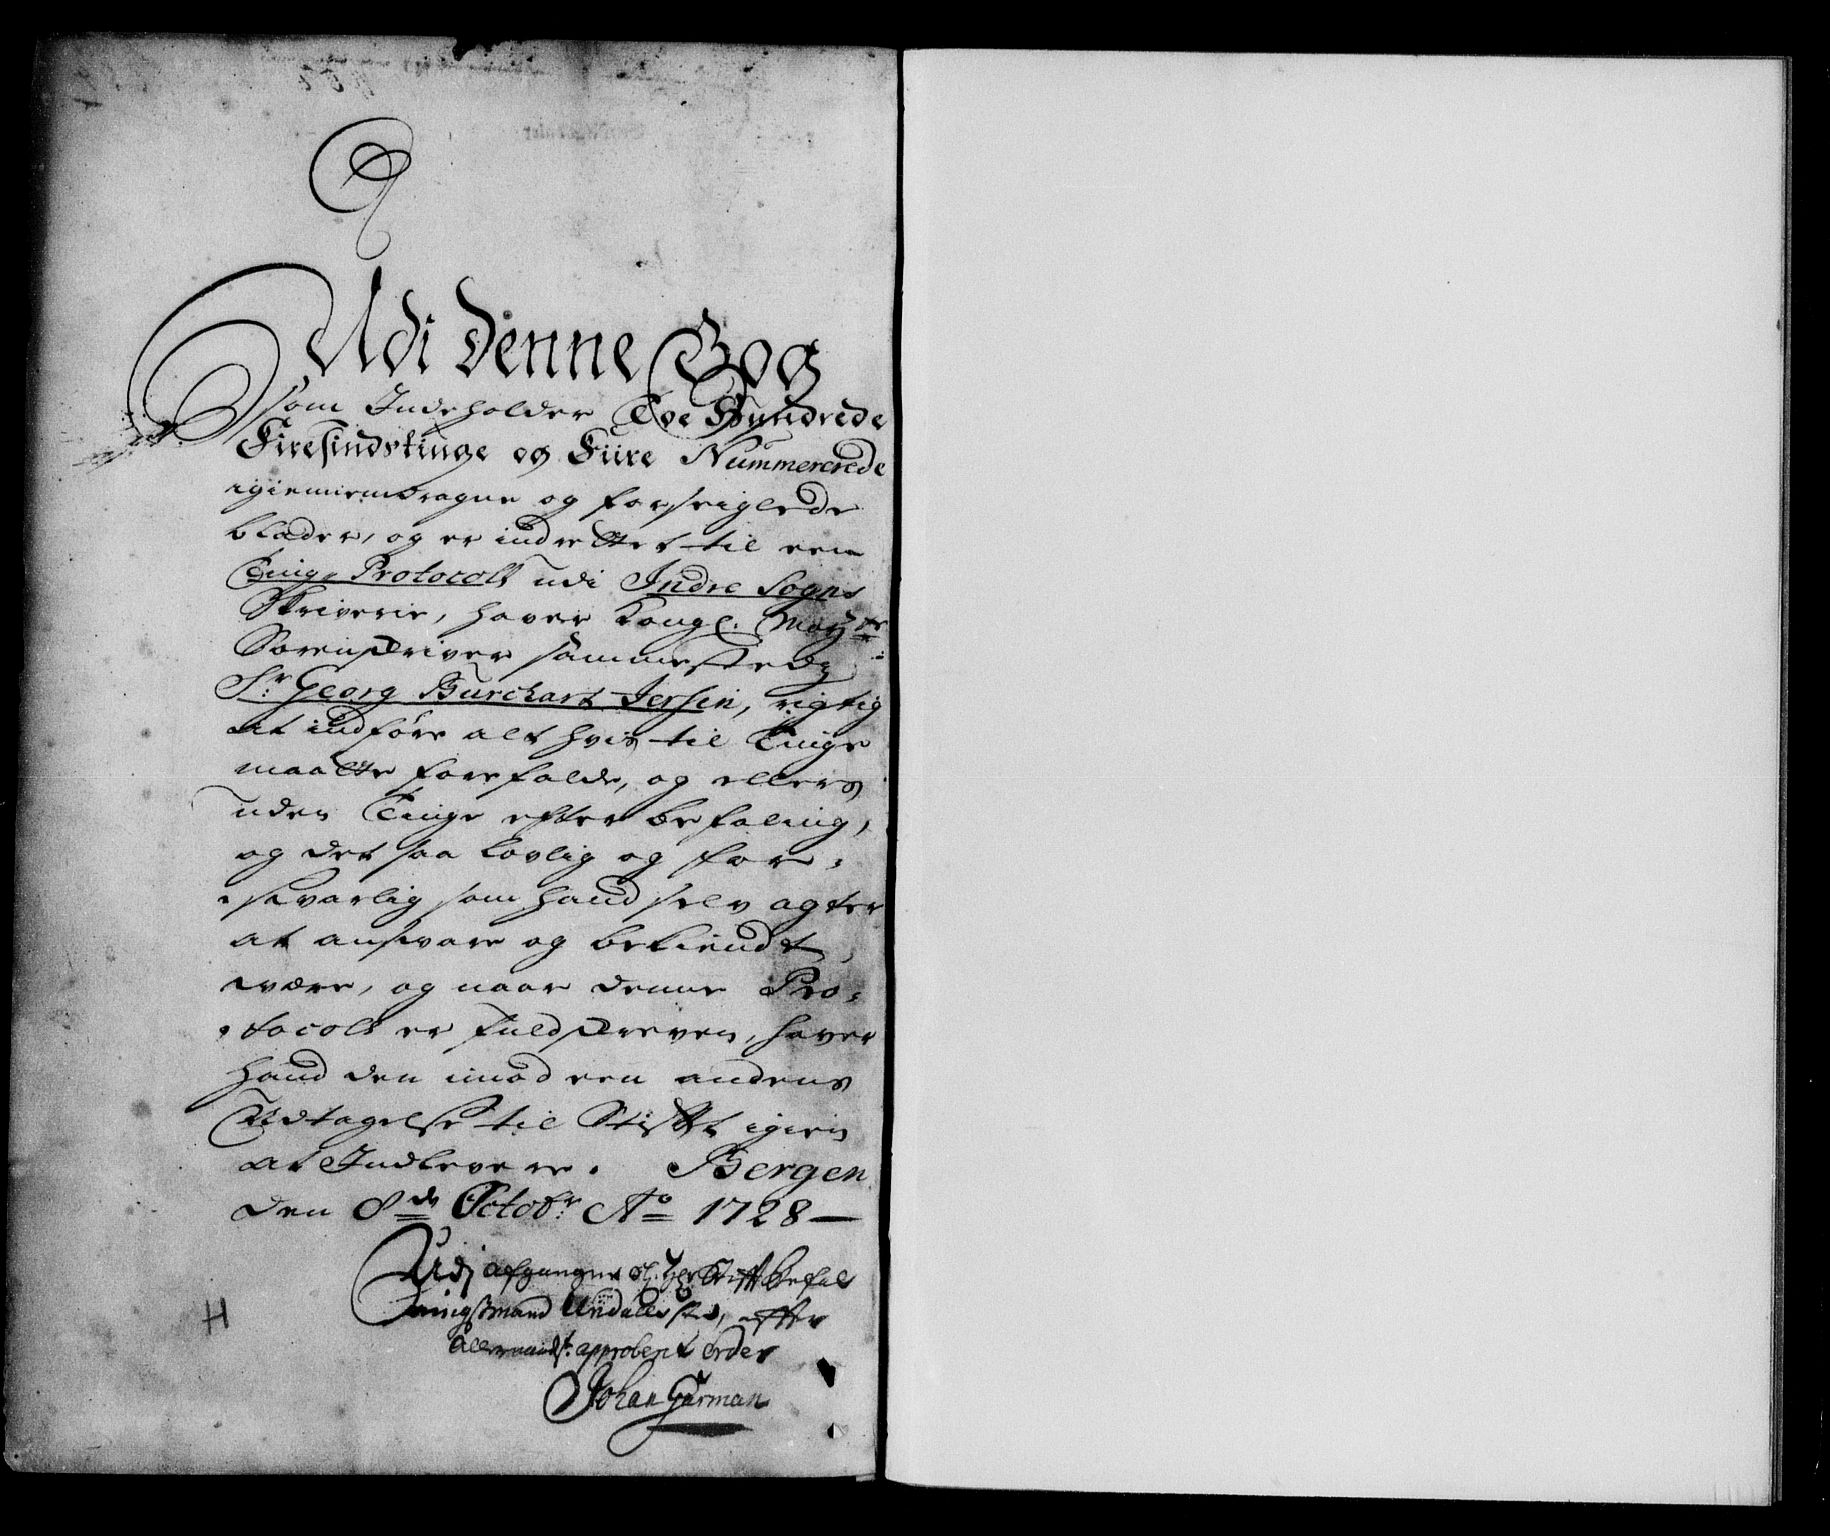 Udi denne Bog
som Indeholder Toe Hundrede
Firesindstinge og Fiire Nummererede
igiennemdragne og forseiglede
blader, og er indrettet til een
Tings Protocoll udi Indre Sogns
Skriverie, haver Kongl. May.ts
Sorenskriver sammesteds
Sr. Georg Burchart Jersin, rigtig
at indføre alt hvis til Tinge
maatte forefalde, og ellers
uden Tinge efter befaling,
og det saa lovlig og for-
-svarlig som hand selv agter
at answare og bekiendt
wære, og naar denne Pro-
-tocoll er fuldskreven, haver
hand den imod een andens
Udtagelse til Stiftet igien
at Indlevere. Bergen
den 8de Octobr. Ao 1728
Udj afgangne Hr Stiftbefal
ningsmand Undalls sted, efter
allernaadst. approberet order
Johan Garman
H